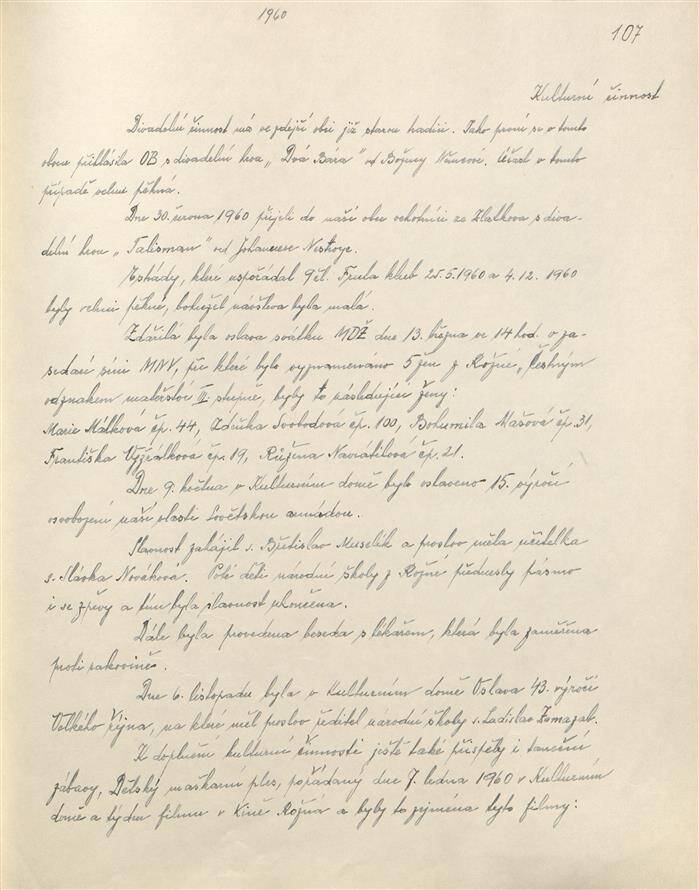 1960
107
Kulturní činnost
Divadelní činnost má ve zdejší obci již starou tradici. Jako první se v tomto
oboru přihlásila OB s divadelní hrou „Divá Bára" od Boženy Němcové. Účast v tomto
případě velmi pěkná.
Dne 30. února 1960 přijeli do naší obce ochotníci ze Zlatkova s diva-
delní hrou „Talisman" od Johannese Nestroye.
Estrády, které uspořádal 9 čl. klub 25.5.1960 a 4.12. 1960
byly velmi pěkné, bohužel návštěva byla malá.
Zdařilá byla oslava svátku MDŽ dne 13. března ve 14 hod. v za-
sedací síni MNV, při které bylo vyznamenáno 5 žen z Rožné, „Čestným
odznakem mateřství III. stupně, byly to následující ženy:
Marie Málková čp. 44, Zdeňka Svobodová čp. 100, Bohumila Mašová čp. 31,
Františka Vyžrálková čp. 19, Růžena Navrátilová čp. 21.
Dne 9. května v Kulturním domě bylo oslaveno 15. výročí
osvobození naší vlasti Sovětskou armádou.
Slavnost zahájil s. Břetislav Muselík a proslov měla učitelka
s. Slávka Nováková. Poté děti národní školy z Rožné přednesly pásmo
i se zpěvy a tím byla slavnost ukončena.
Dále byla provedena beseda s lékařem, která byla zaměřena
proti rakovině.
Dne 6. listopadu byla v Kulturním domě Oslava 43. výročí
Velkého října, na které měl proslov ředitel národní školy s. Ladislav
K doplnění kulturní činnosti jistě také přispěly i taneční
zábavy, Dětský maškarní ples, pořádaný dne 7. ledna 1960 v Kulturním
domě a týden filmu v Kině Rožná a byly to zejména tyto filmy: